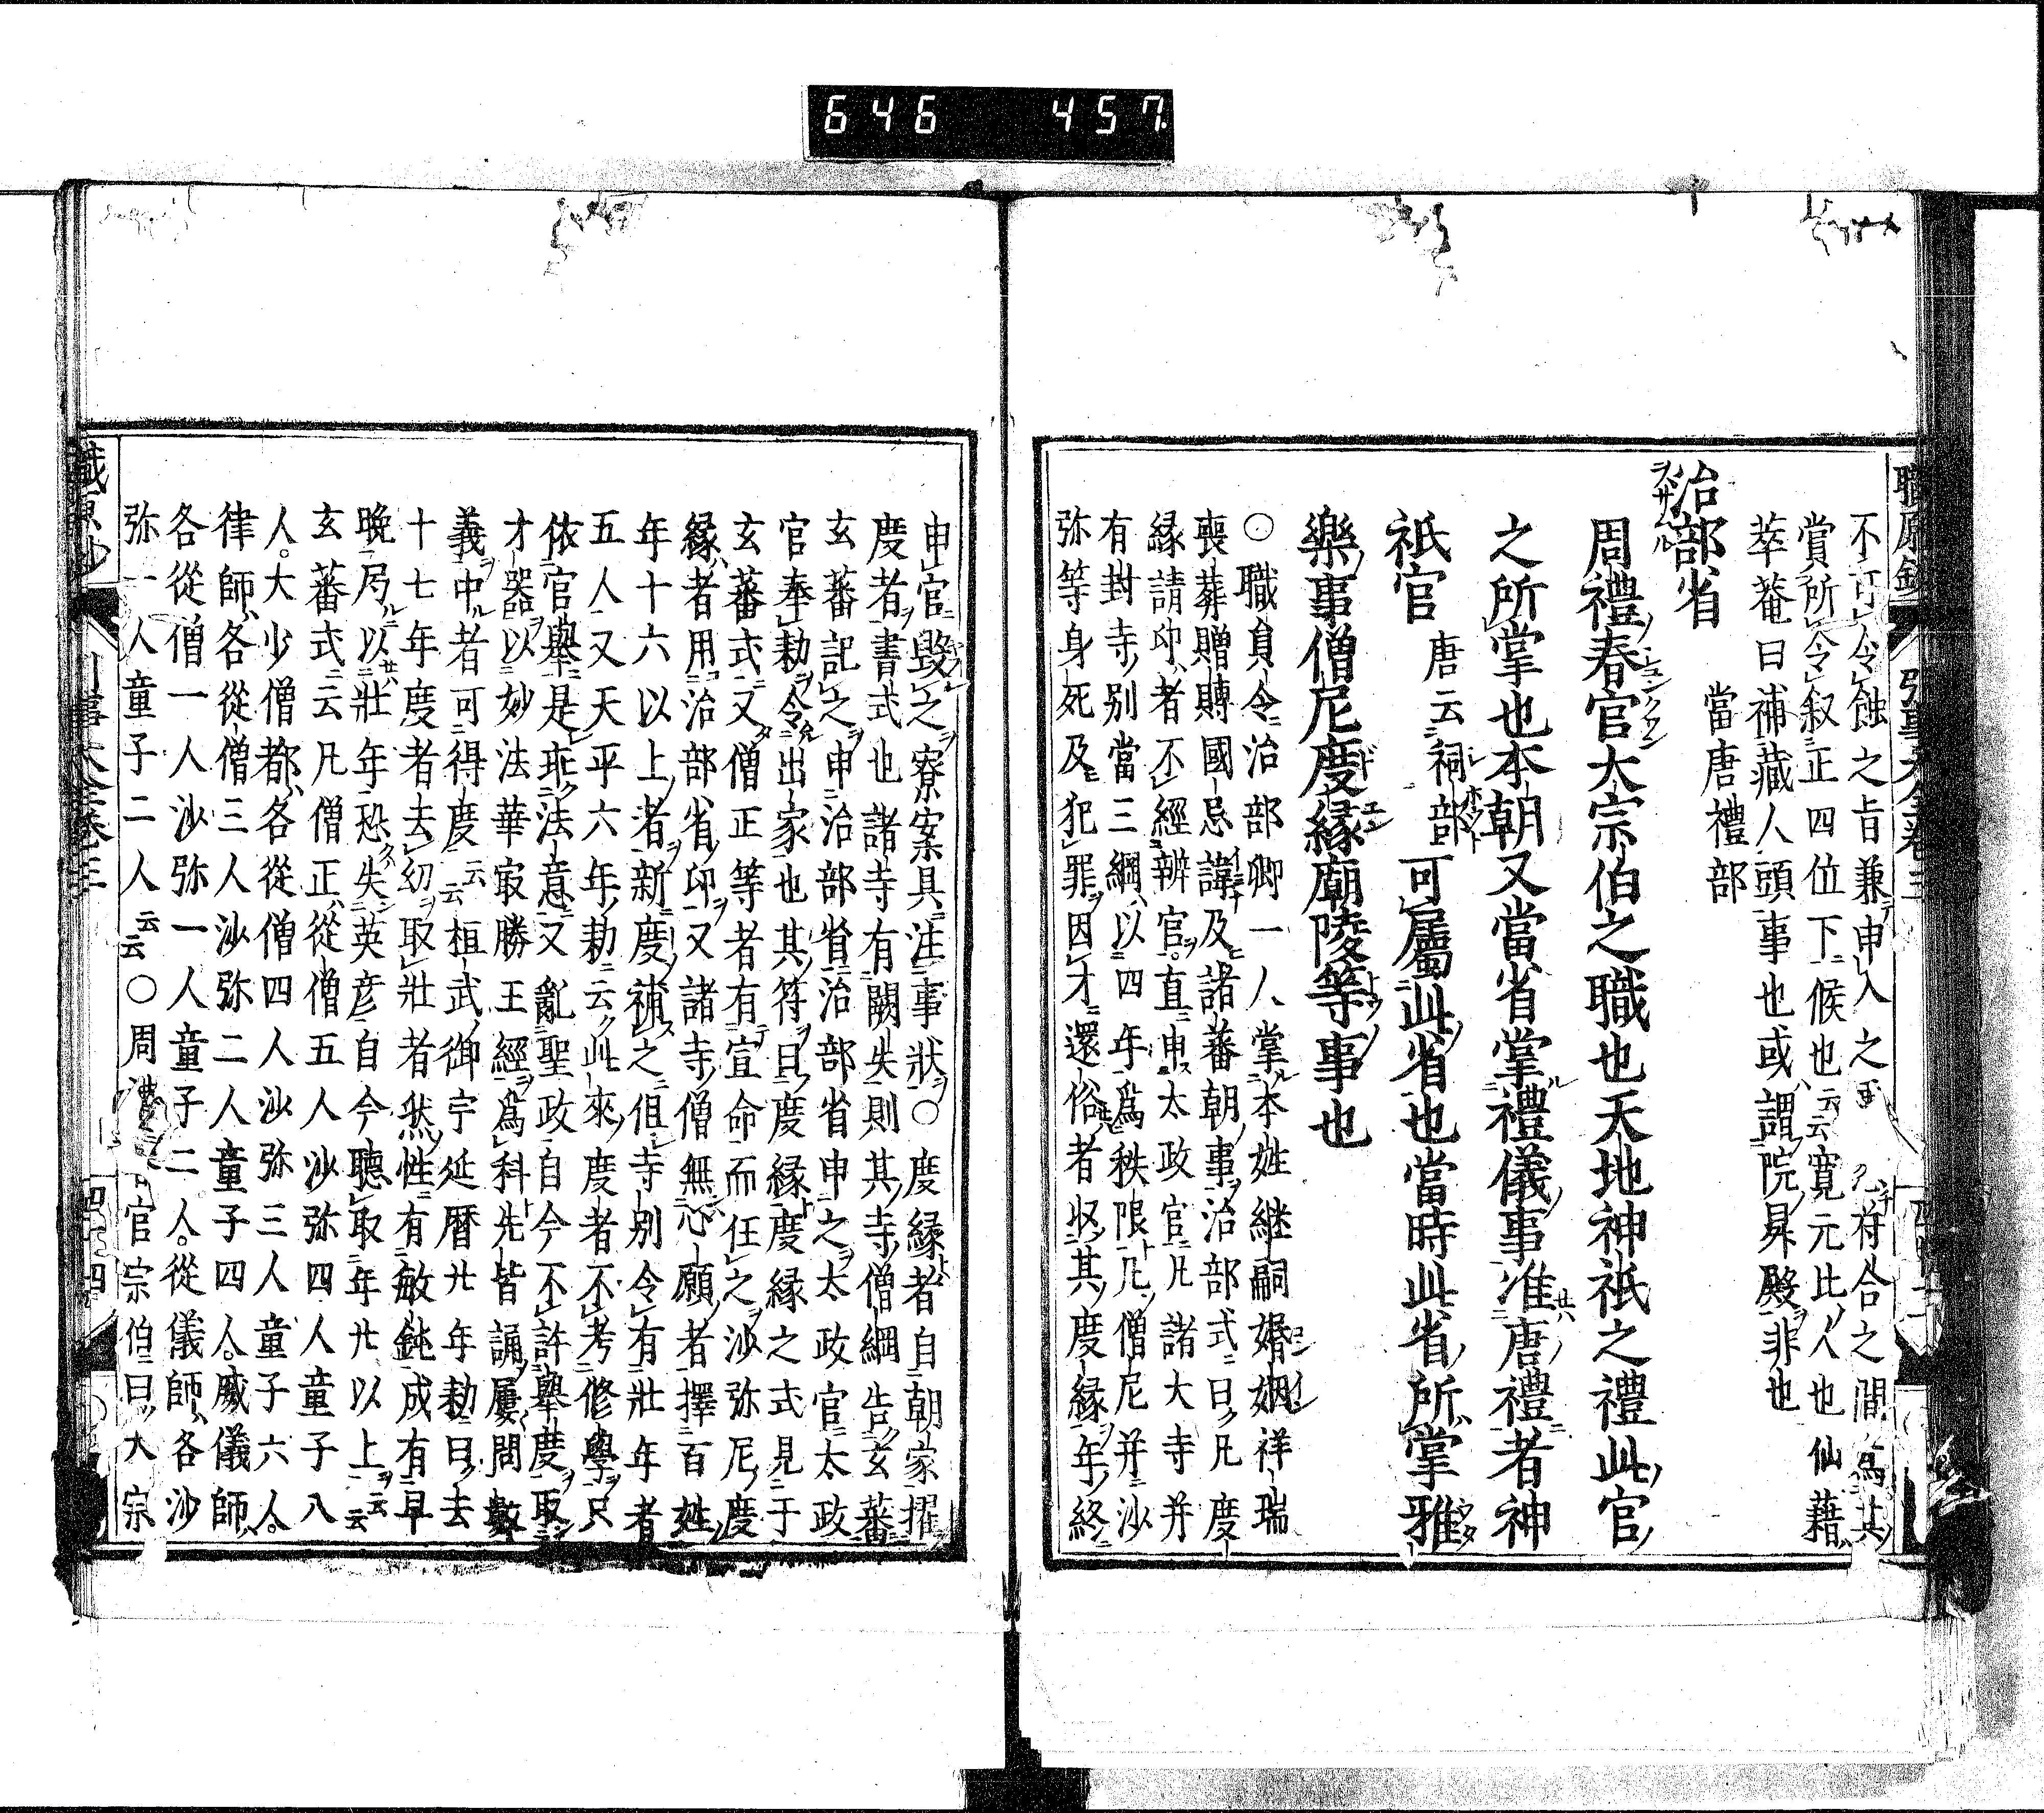 646 457
職原鈔
引事大全卷三
不可令蝕之旨兼申入之 符合之間 爲其
賞所令叙正四位下候也云云寛元比人也仙藉
萃菴曰補藏人頭事也或謂院昇殿非也
治部省 當唐禮部
ヲサムル
周禮春官大宗伯之職也天地神祇之禮此官
之所掌也本朝又當省掌禮儀事准唐禮者神
祇官 唐云祠部 可屬此省也當時此省所掌雅
樂事僧尼度縁廟陵等事也
○職員令治部卿一人掌本姓継嗣婚姻祥瑞
喪葬贈賻國忌諱及諸蕃朝事治部式曰凡度
縁請印者不經辨官直申太政官凡諸大寺并
有封寺別當三綱以四年爲秩限凡僧尼并沙
弥等身死及犯罪因才還俗者収其度縁年終
申官毀之寮案具注事状○度縁者自朝家擢
度者書式也諸寺有闕失則其寺僧綱告玄蕃
玄蕃記之申治部省治部省申之太政官太政
官奉勅令出家也其符曰度縁度縁之式見于
玄蕃式又僧正等者有宣命而任之沙弥尼度
縁者用治部省印又諸寺僧無心願者擇百姓
年十六以上者新度補之但寺別令有壯年者
五人又天平六年勅云此來度者不考修學只
依官擧是非法意又亂聖政自今不許擧度取
才器以妙法華㝡勝王經爲科先皆誦屢問數
義中者可得度云云桓武御宇延暦廿年勅曰去
十七年度者去幼取壯者然性有敏鈍成有早
晩局以壯年恐失英彦自今聴取年廿以上云云
玄蕃式云凡僧正從僧五人沙弥四人童子八
人大少僧都各從僧四人沙弥三人童子六人
律師各從僧三人沙弥二人童子四人威儀師
各從僧一人沙弥一人童子二人從儀師各沙
弥一人童子二人云云○周禮 官宗伯曰大宗
職原鈔
引事大全卷三
四十四